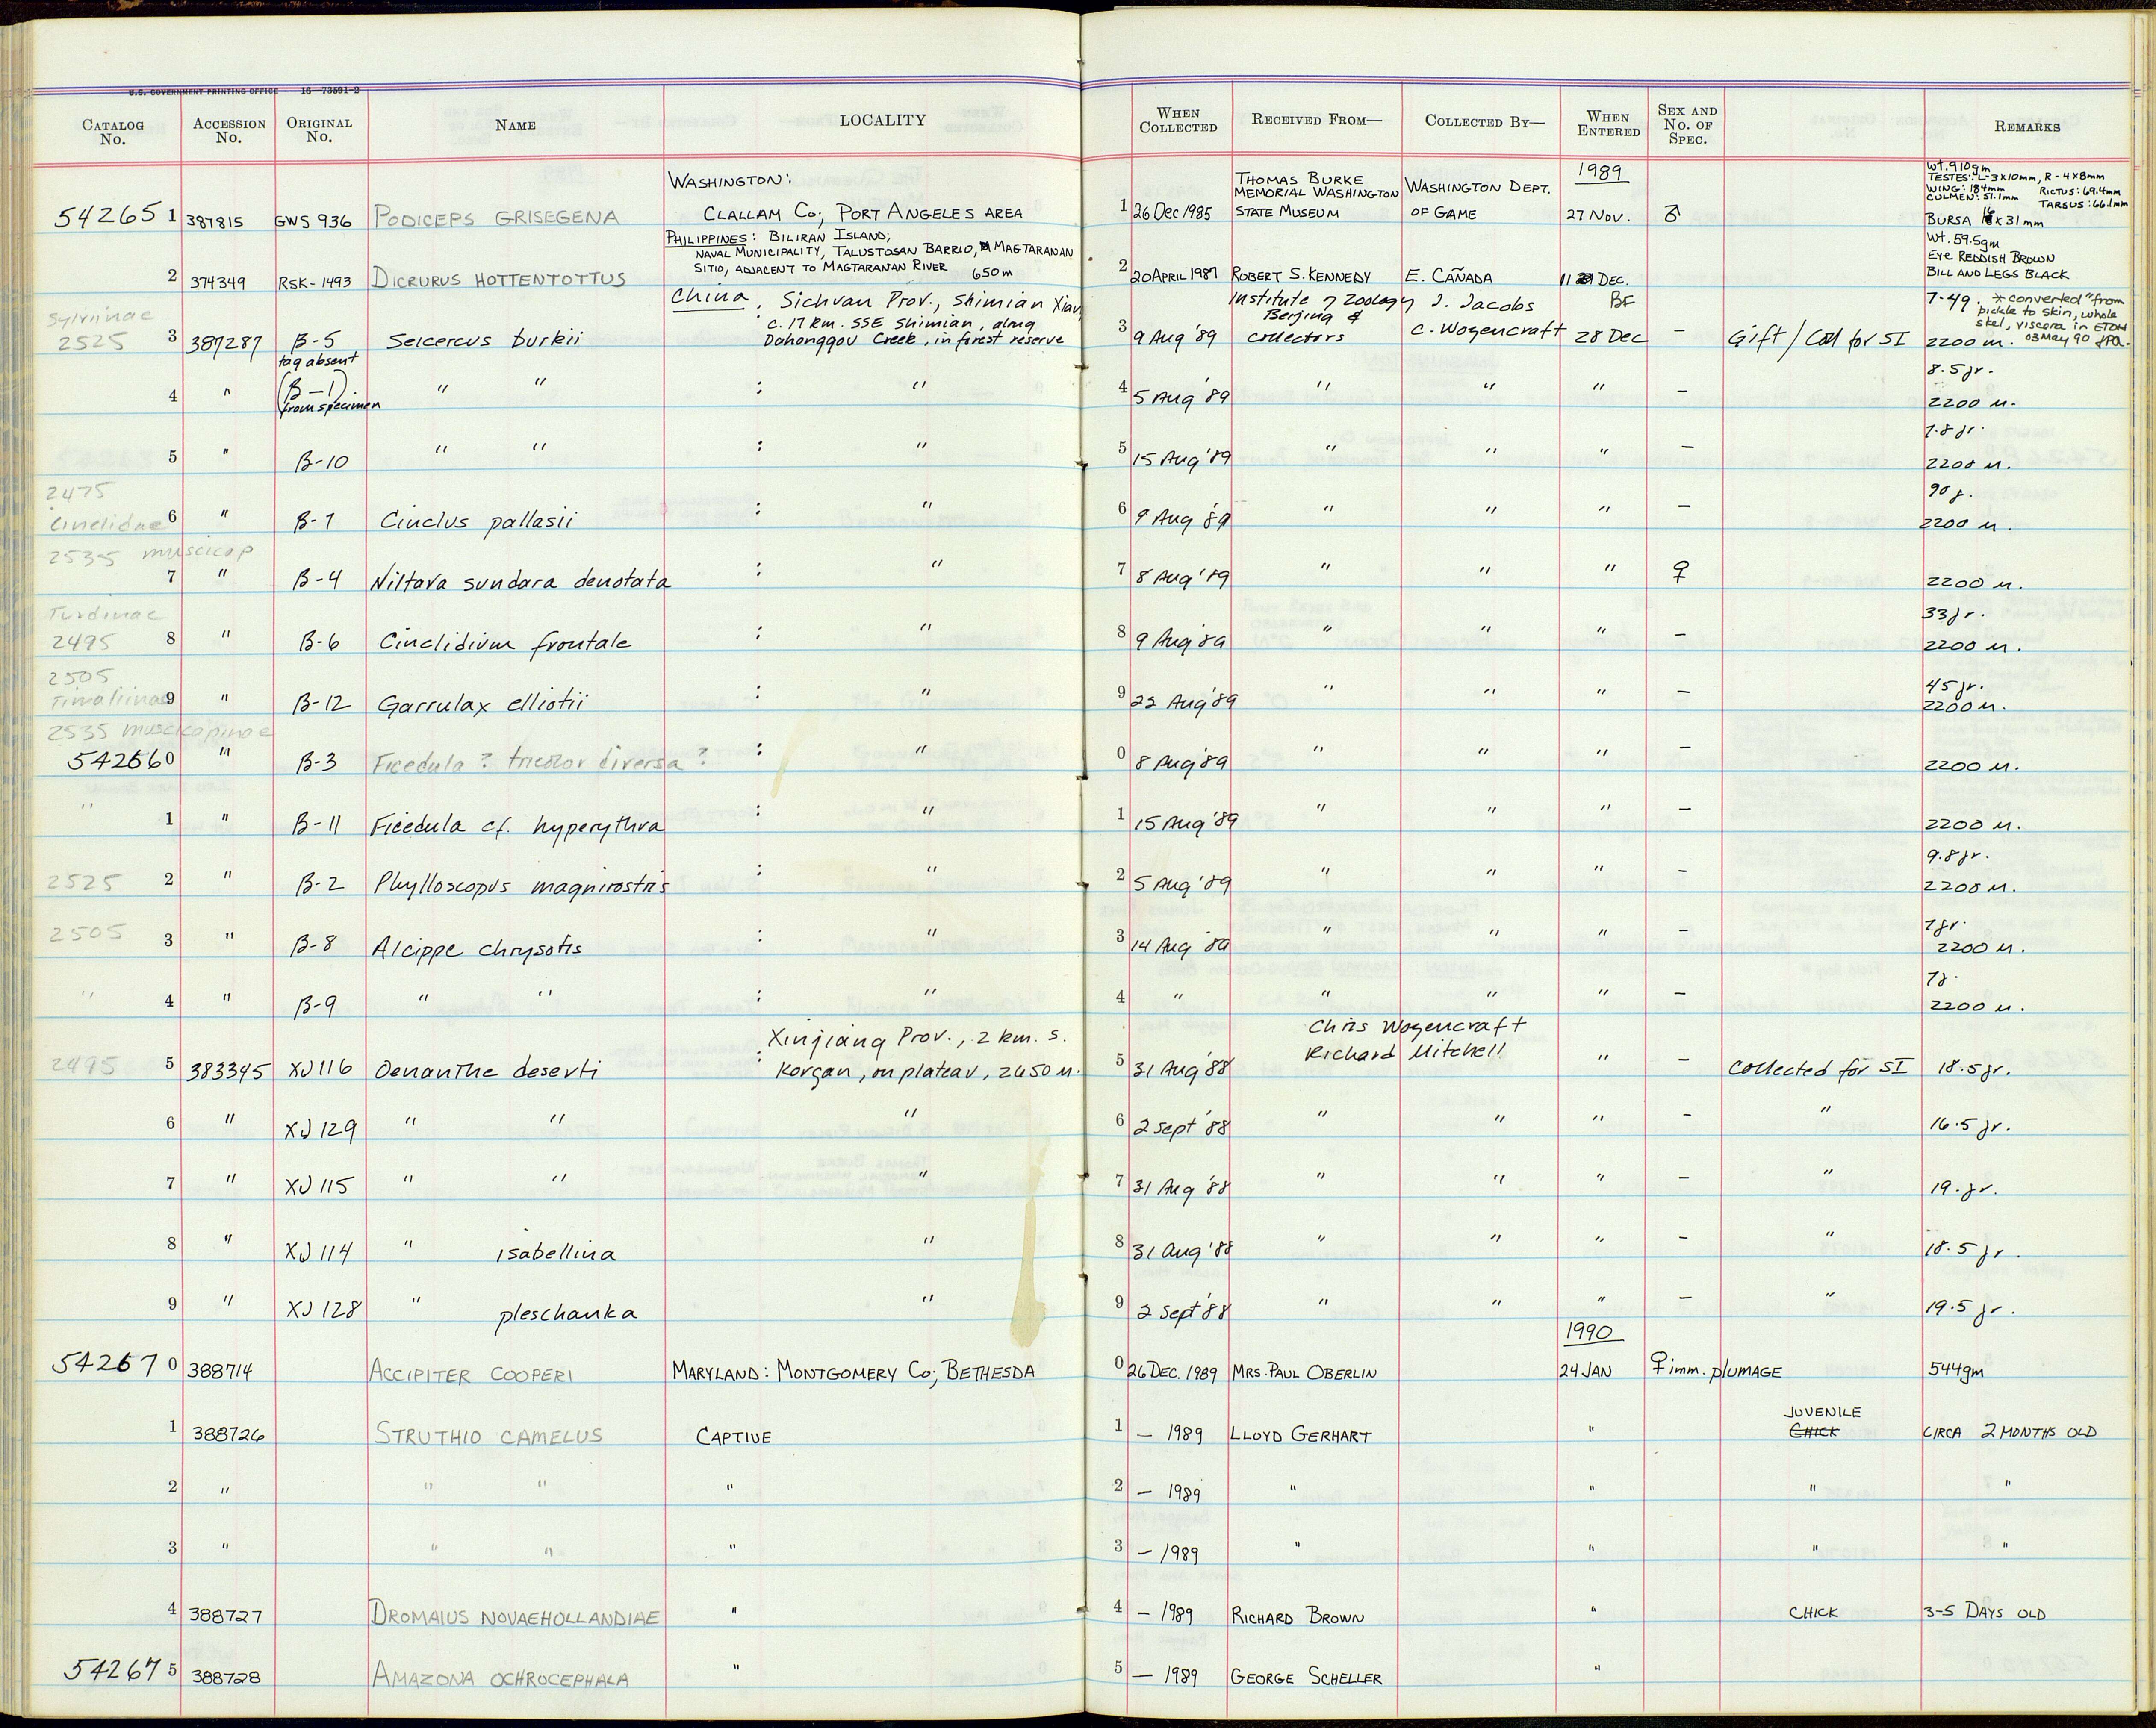 U.S. GOVERNMENT PRINTING OFFICE 16—73591-2
CATALOG No. ACCESSION No. ORIGINAL No. NAME LOCALITY WHEN COLLECTED RECEIVED FROM— COLLECTED BY— WHEN ENTERED SEX AND No. OF SPEC. REMARKS
WASHINGTON: THOMAS BURKE 1989 Wt. 910gm
MEMORIAL WASHINGTON WASHINGTON DEPT. TESTES: L-3x10mm, R-4x8mm
WING: 184mm RICTUS: 69.4mm
CULMEN: 51.1mm TARSUS: 66.1mm
54265 1 387815 GWS 936 PODICEPS GRISEGENA CLALLAM Co; PORT ANGELES AREA 1 26 Dec 1985 STATE MUSEUM OF GAME 27 Nov. ♂ BURSA x31mm
PHILIPPINES: BILIRAN ISLAND; Wt. 59.5gm
NAVAL MUNICIPALITY, TALUSTOSAN BARRIO, MAGTARANAN EYE REDDISH BROWN
2 374349 RSK-1493 DICRURUS HOTTENTOTTUS SITIO, ADJACENT TO MAGTARANAN RIVER 650m 2 20 APRIL 1987 ROBERT S. KENNEDY E. CAÑADA 11 DEC. BILL AND LEGS BLACK
Sylviinae China, Sichuan Prov., Shimian Xian, Institute of Zoology J. Jacobs BF 7.49. *converted "from
c. 17 km. SSE Shimian, along Beijing & pickle to skin, whole
skel, viscera in ETOH
2525 3 387287 B-5 Seicercus burkii Dahonggou Creek, in forest reserve 3 9 Aug '89 collectors C. Wozencraft 28 Dec – Gift / Coll for SI 2200 m. 03 May 90 JPA.
tag absent
4 " (B-1). " " : " 4 5 Aug '89 " " " – 8.5 gr.
from specimen 2200 m.
5 " B-10 " " : " 5 15 Aug '89 " " " – 7.8 gr.
2200 m.
2475 90 g.
Cinclidae 6 " B-7 Cinclus pallasii : " 6 9 Aug '89 " " " – 2200 m.
2535 muscicap
7 " B-4 Niltava sundara denotata : " 7 8 Aug '89 " " " ♀ 2200 m.
Turdinae 33 gr.
2495 8 " B-6 Cinclidium frontale : " 8 9 Aug '89 " " " – 2200 m.
2505 45 gr.
Timaliinae 9 " B-12 Garrulax elliotii : " 9 22 Aug '89 " " " – 2200 m.
2535 muscicapinae
54266 0 " B-3 Ficedula ? tricolor diversa ? : " 0 8 Aug '89 " " " – 2200 m.
" 1 " B-11 Ficedula cf. hyperythra : " 1 15 Aug '89 " " " – 2200 m.
9.8 gr.
2525 2 " B-2 Phylloscopus magnirostris : " 2 5 Aug '89 " " " – 2200 m.
7 gr.
2505 3 " B-8 Alcippe chrysotis : " 3 14 Aug '89 " " " – 2200 m.
7 g.
" 4 " B-9 " " : " 4 " " " " – 2200 m.
Xinjiang Prov., 2 km. S. Chris Wozencraft
Richard Mitchell
2495 5 383345 XJ 116 Oenanthe deserti : Korgan, on plateau, 2650 m. 5 31 Aug '88 " – Collected for SI 18.5 gr.
6 " XJ 129 " " " 6 2 Sept '88 " " " – " 16.5 gr.
7 " XJ 115 " " " 7 31 Aug '88 " " " – " 19. gr.
8 " XJ 114 " isabellina " 8 31 Aug '88 " " " – " 18.5 gr.
9 " XJ 128 " pleschanka " 9 2 Sept '88 " " " – " 19.5 gr.
1990
54267 0 388714 ACCIPITER COOPERI MARYLAND: MONTGOMERY Co; BETHESDA 0 26 DEC. 1989 MRS. PAUL OBERLIN 24 JAN ♀ imm. PLUMAGE 544gm
JUVENILE
1 388726 STRUTHIO CAMELUS CAPTIVE 1 — 1989 LLOYD GERHART " CHICK CIRCA 2 MONTHS OLD
2 " " " " 2 — 1989 " " " "
3 " " " " 3 — 1989 " " " "
4 388727 DROMAIUS NOVAEHOLLANDIAE " 4 — 1989 RICHARD BROWN " CHICK 3-5 DAYS OLD
54267 5 388728 AMAZONA OCHROCEPHALA " 5 — 1989 GEORGE SCHELLER "